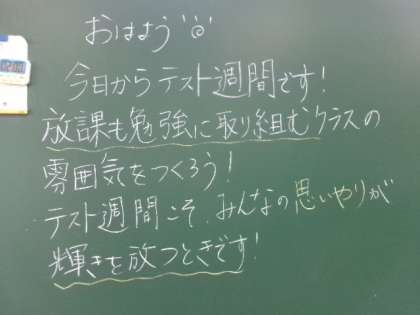 おはよう
今日からテスト週間です!
放課も勉強に取り組むクラスの
雰囲気をつくろう!
テスト週間こそ、みんなの思いやりが
輝きを放つときです!